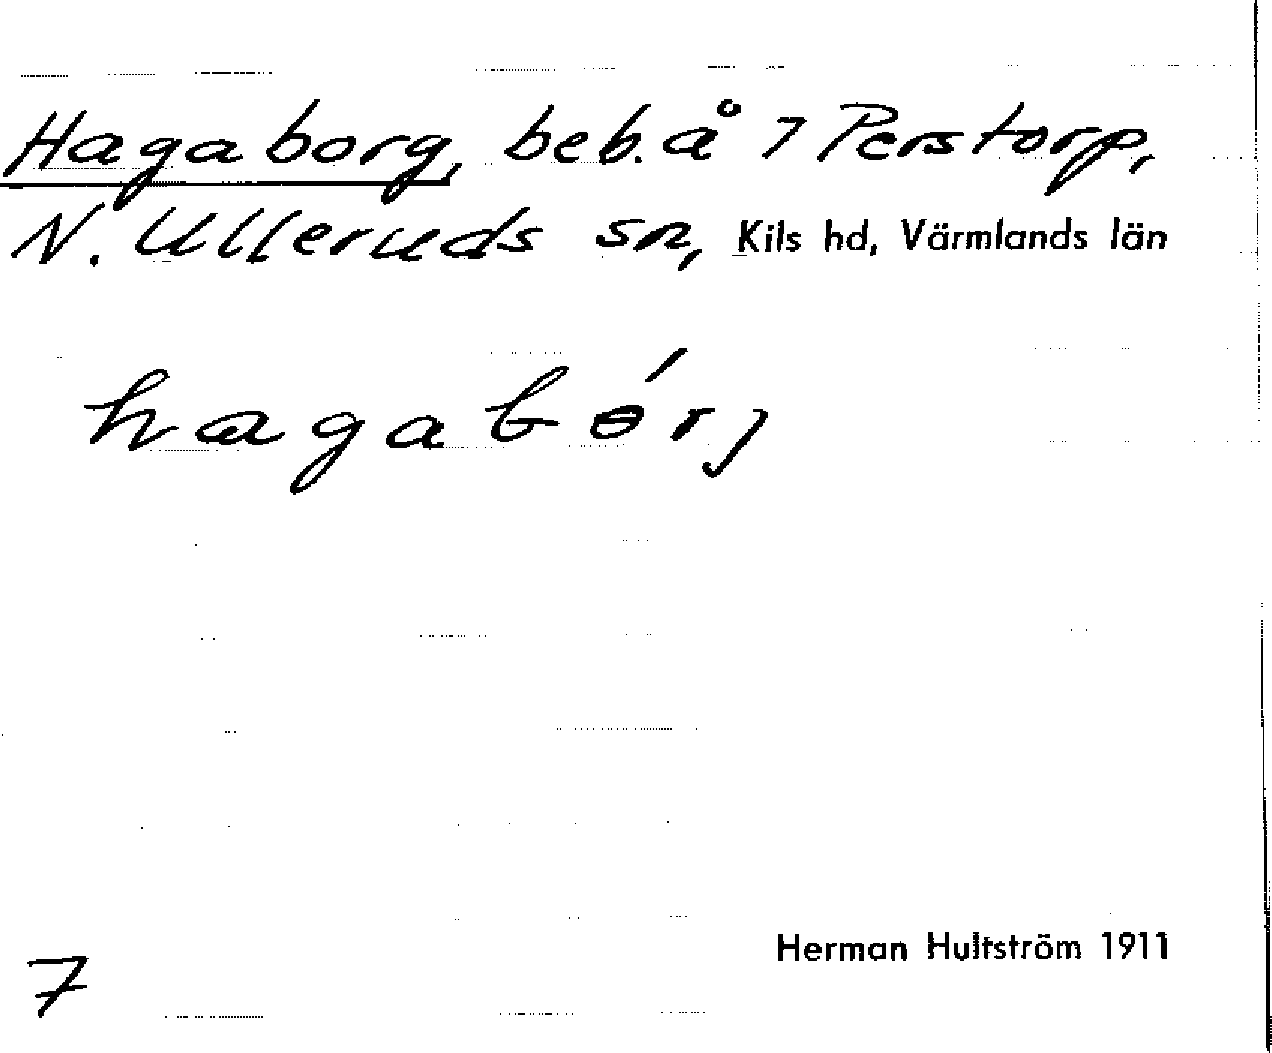 Hagaborg, beb. å 7 Perstorp,
N. Ulleruds sn, Kils hd, Värmlands län
hagabɵ́rj
Herman Hultström 1911
7